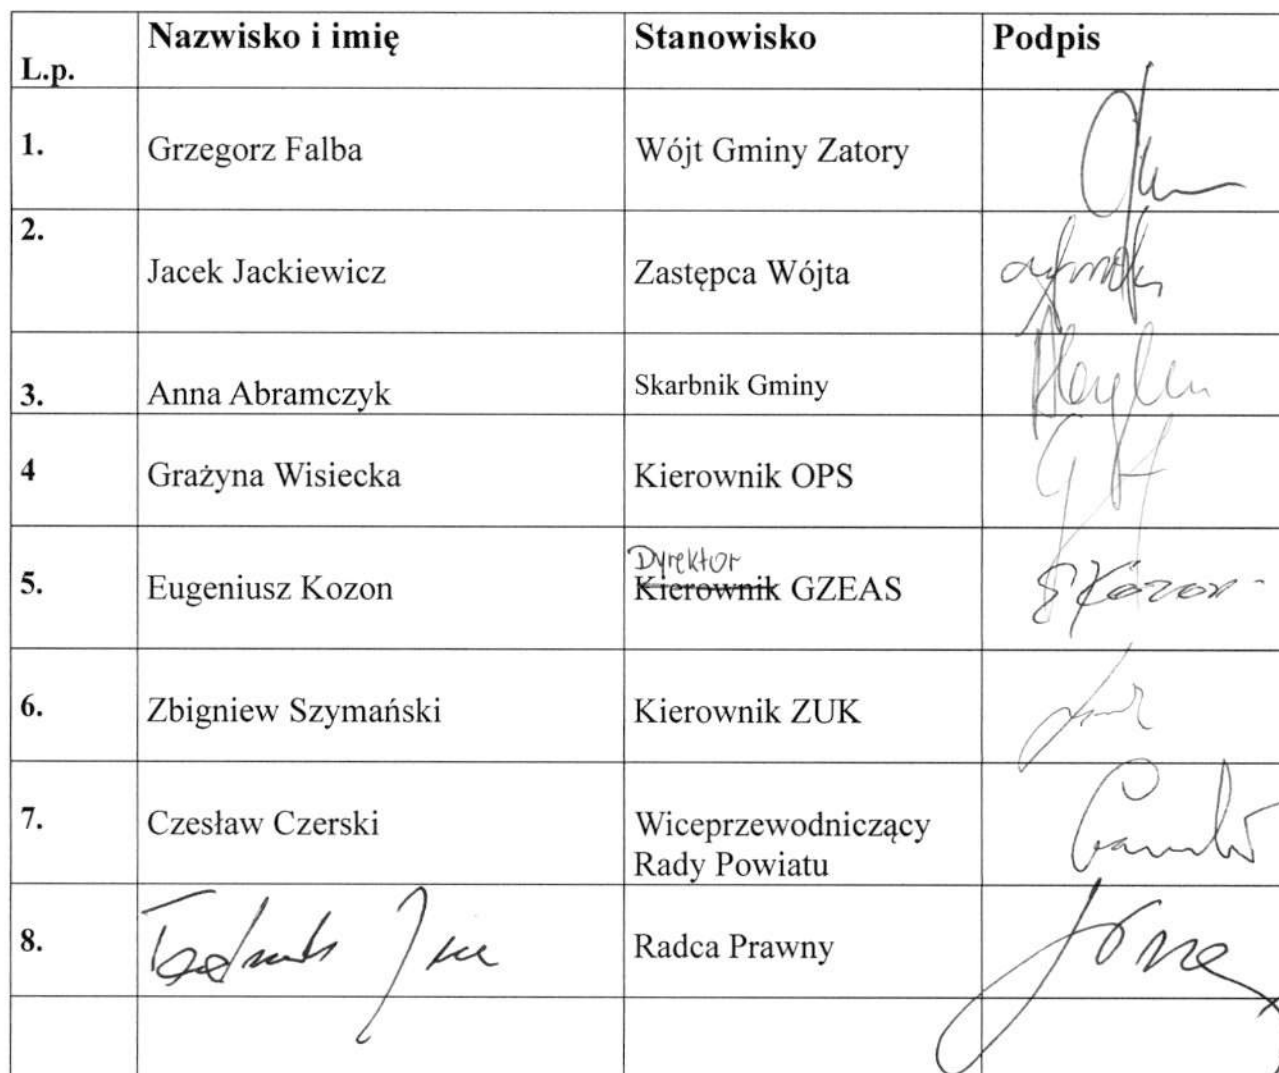 L.p. Nazwisko i imię Stanowisko Podpis
1. Grzegorz Falba Wójt Gminy Zatory
2. Jacek Jackiewicz Zastępca Wójta
3. Anna Abramczyk Skarbnik Gminy
4 Grażyna Wisiecka Kierownik OPS
Dyrektor
5. Eugeniusz Kozon Kierownik GZEAS EKozon
6. Zbigniew Szymański Kierownik ZUK
7. Czesław Czerski Wiceprzewodniczący
Rady Powiatu
8. Radca Prawny